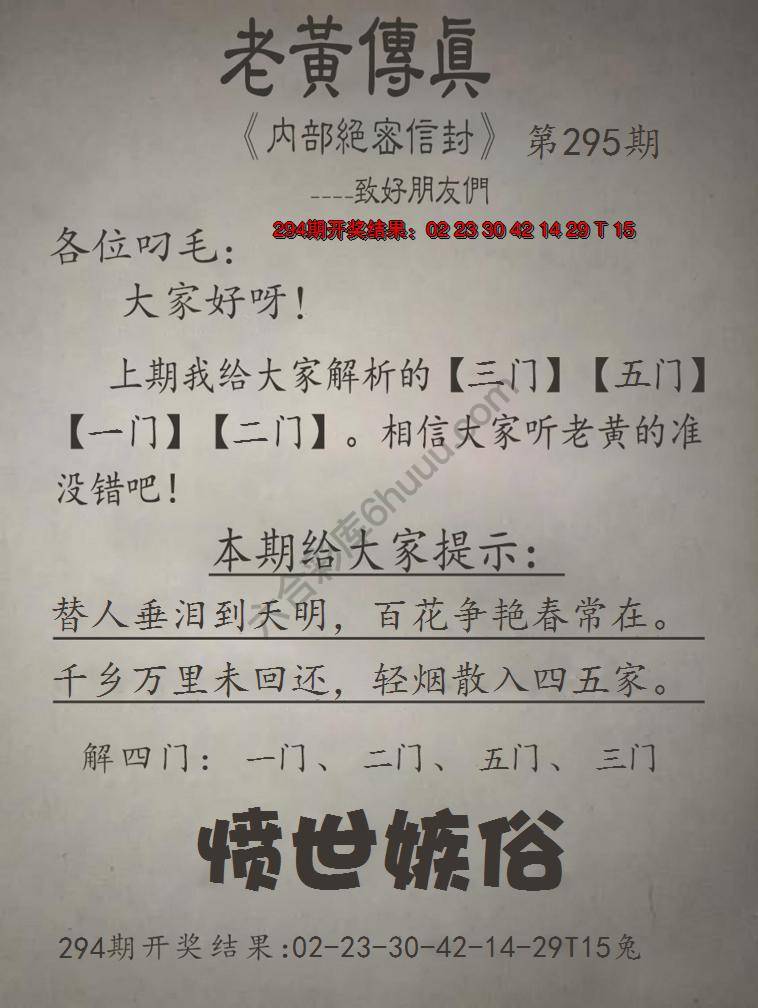 老黃傳眞
《内部絕密信封》 第295期
----致好朋友們
294期开奖结果：02 23 30 42 14 29 T 15
各位叼毛：
大家好呀！
上期我给大家解析的【三门】【五门】
【一门】【二门】。相信大家听老黄的准
没错吧！
本期给大家提示：
替人垂泪到天明，百花争艳春常在。
千乡万里未回还，轻烟散入四五家。
解四门：一门、二门、五门、三门
愤世嫉俗
294期开奖结果:02-23-30-42-14-29T15兔
六合彩库6huuu.com